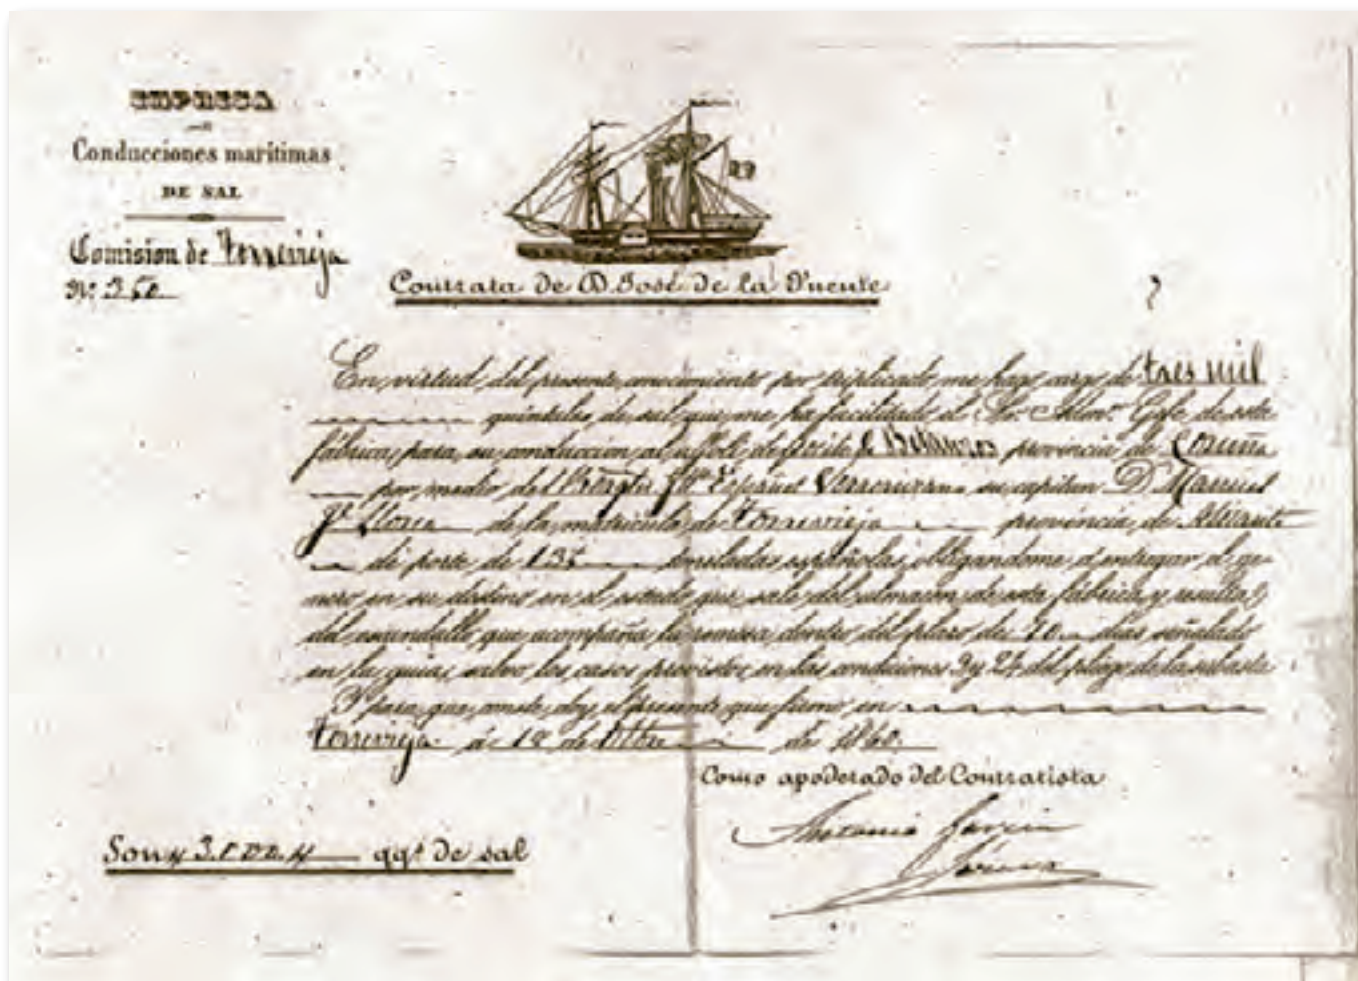 EMPRESA
DE
Conducciones marítimas
DE SAL
Comision de Torrevieja
Nº
Contrata de D. José de la Puente
En virtud del presente conocimiento por triplicado me hago cargo de tres mil
quintales de sal que me ha facilitado el Sr. Admor Gefe de esta
fábrica para su conduccion al alfolí depósito de Betanzos provincia de Coruña
por medio del Español su capitan D. Manuel
de la matrícula de Torrevieja provincia de Alicante
de porte de toneladas españolas, obligandome á entregar el gé-
nero en su destino en el estado que sale del almacen de esta fábrica y resulta
del escandallo que acompaña la remesa dentro del plazo de dias señalado
en la guia, salvo los casos previstos en las condiciones y del pliego de la subasta
Y para que conste doy el presente que firmo en
Torrevieja á de de 1860.
Como apoderado del Contratista
Antonio Garcia
Son 3.000 qqs de sal